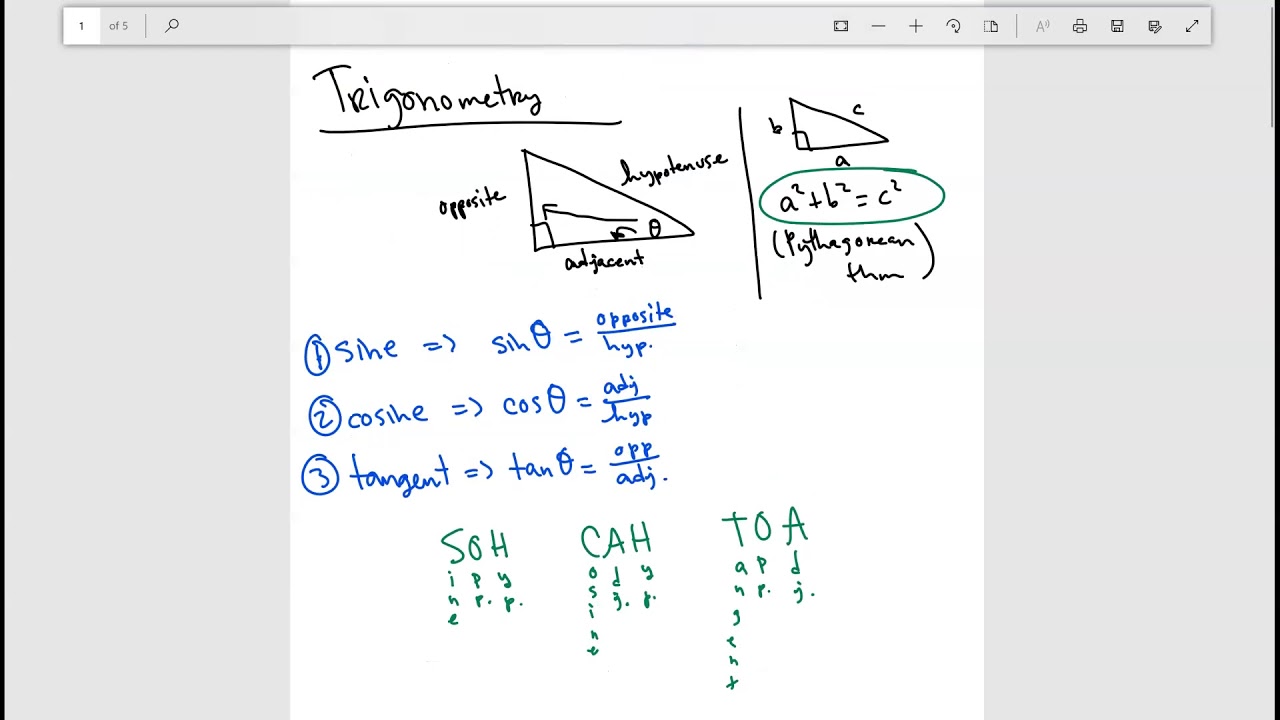 1 of 5
Trigonometry
opposite
hypotenuse
θ
adjacent
b
c
a
a² + b² = c²
(Pythagorean
thm)
① sine => sinθ = opposite/hyp.
② cosine => cosθ = adj/hyp
③ tangent => tanθ = opp/adj.
SOH CAH TOA
i p y o d y a p d
n p. p. s j. p. n p. j.
e i g
n e
e n
t